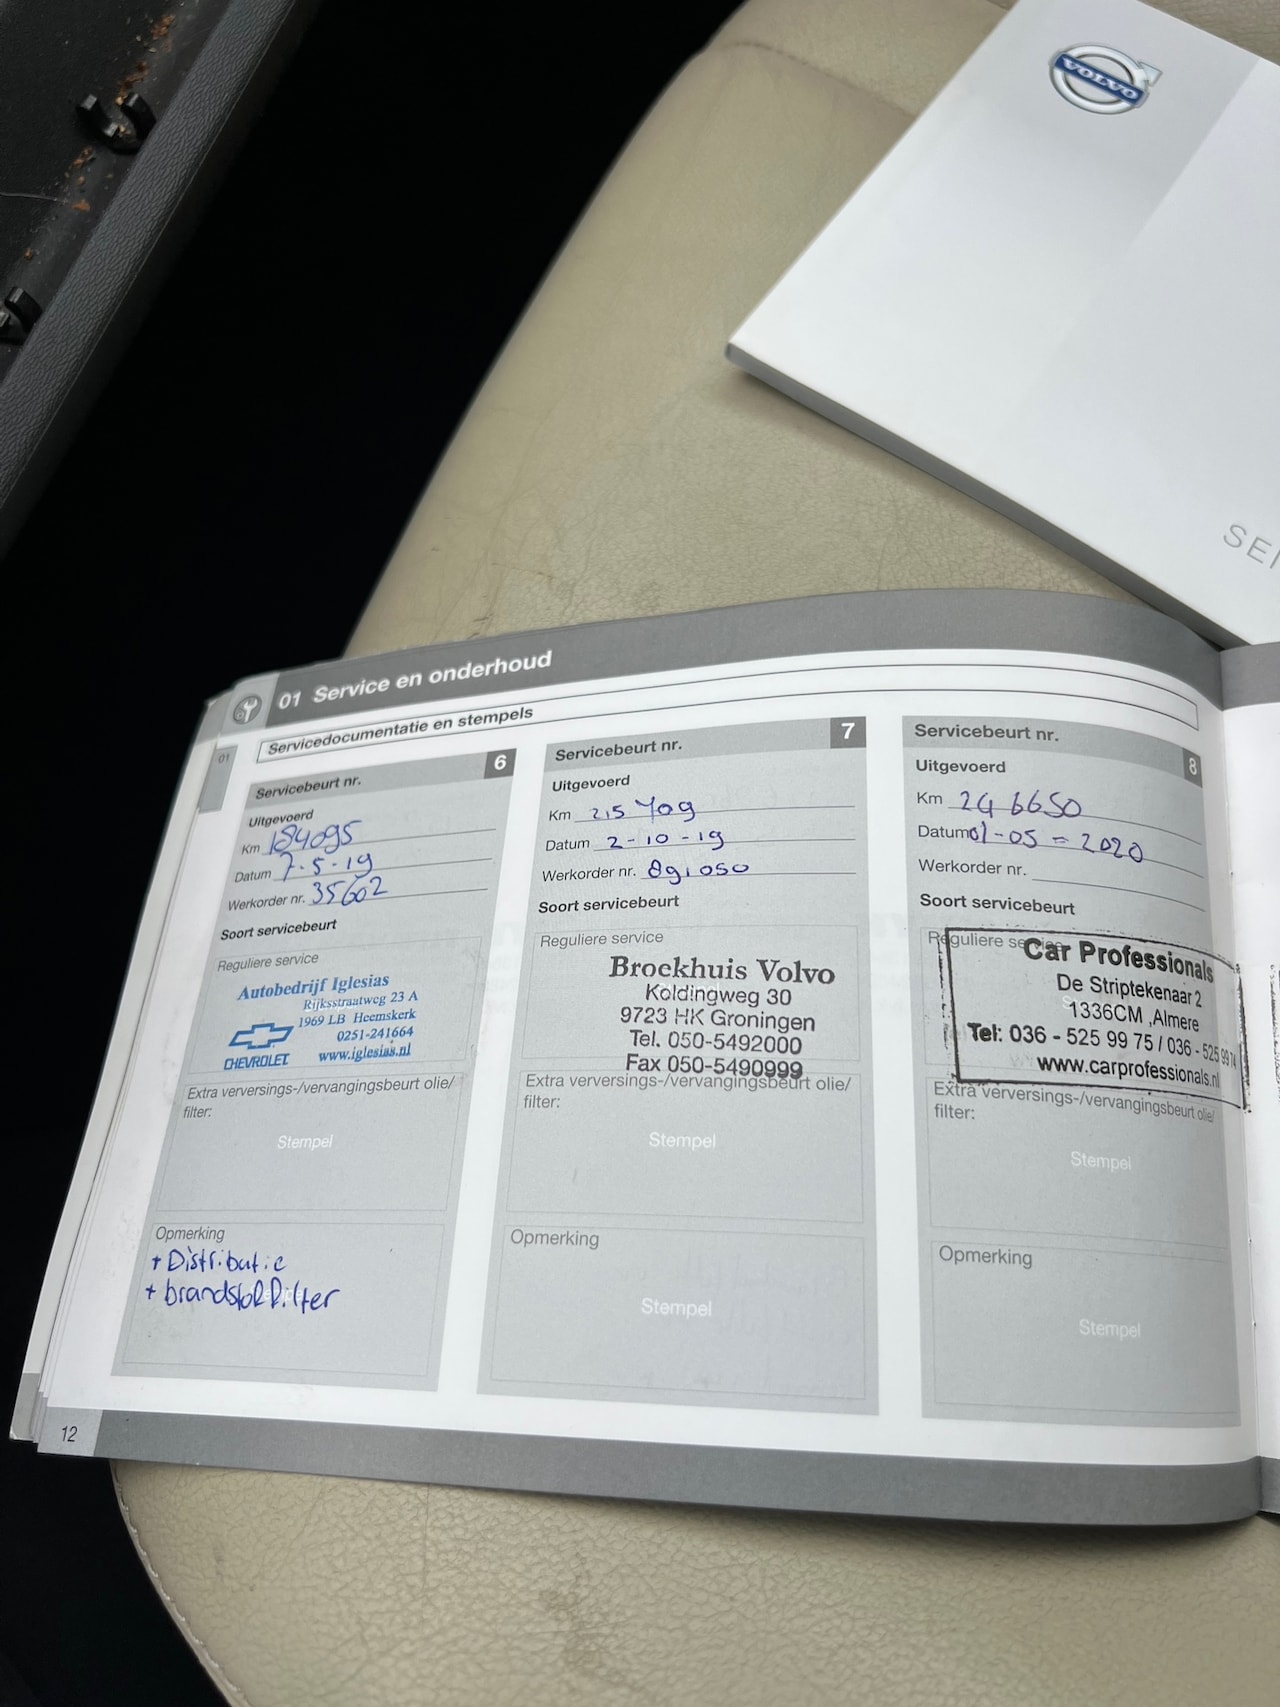 VOLVO
SER
01 Service en onderhoud
01
Servicedocumentatie en stempels
Servicebeurt nr. 6
Uitgevoerd
Km 184095
Datum 7-5-19
Werkorder nr. 35602
Soort servicebeurt
Reguliere service
Autobedrijf Iglesias
Rijksstraatweg 23 A
1969 LB Heemskerk
0251-241664
CHEVROLET www.iglesias.nl
Extra verversings-/vervangingsbeurt olie/
filter:
Stempel
Opmerking
+ Distributie
+ brandstoffilter
Servicebeurt nr. 7
Uitgevoerd
Km 215709
Datum 2-10-19
Werkorder nr.
Soort servicebeurt
Reguliere service
Broekhuis Volvo
Koldingweg 30
9723 HK Groningen
Tel. 050-5492000
Fax 050-5490999
Extra verversings-/vervangingsbeurt olie/
filter:
Stempel
Opmerking
Stempel
Servicebeurt nr. 8
Uitgevoerd
Km 246650
Datum 01-05-2020
Werkorder nr.
Soort servicebeurt
Reguliere service
Car Professionals
De Striptekenaar 2
1336CM ,Almere
Tel: 036 - 525 99 75 / 036 - 525 99 74
www.carprofessionals.nl
Extra verversings-/vervangingsbeurt olie/
filter:
Stempel
Opmerking
Stempel
12